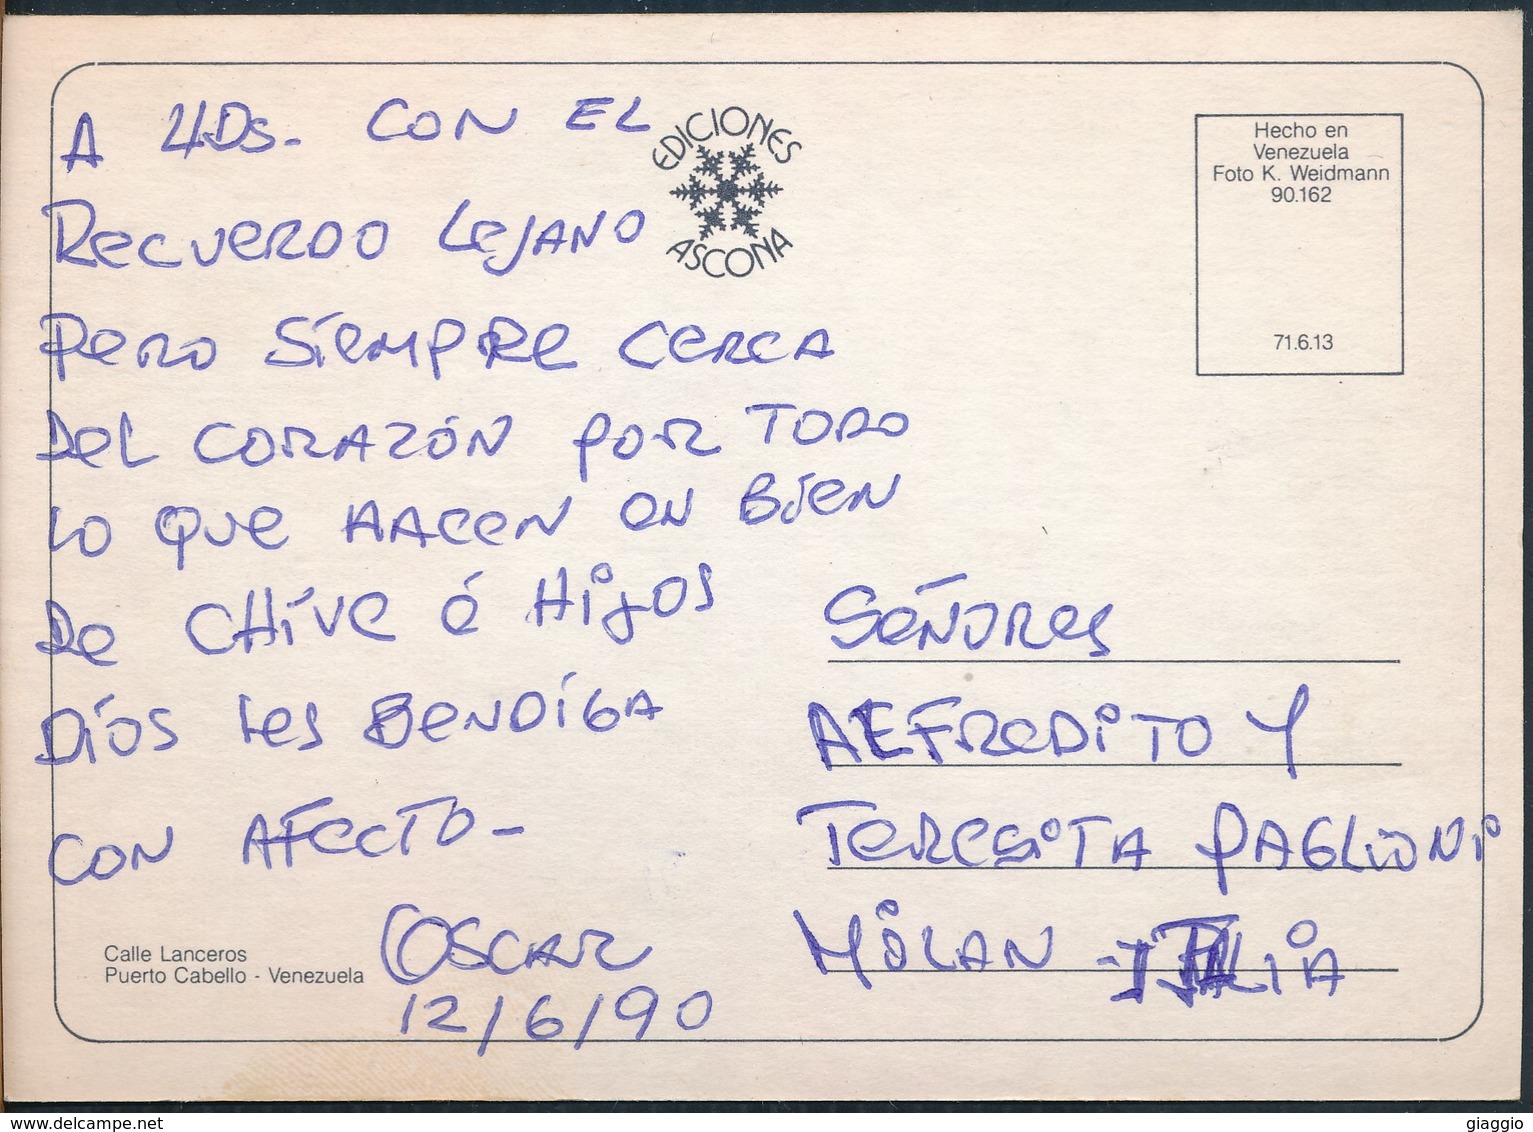 A UDs. CON EL
RecueRDO LeJANO
Pero Siempre cerca
Del CORAZÓN por TODO
Lo Que HACEN en Bien
De CHIVE é Hijos
Dios les BENDIGA
CON AFecTO-
OSCAR
12/6/90
EDICIONES
ASCONA
Hecho en
Venezuela
Foto K. Weidmann
90.162
71.6.13
SeÑORes
ALFReDiTO Y
TeResiTA PAGLIONi
MiLAN - ITALiA
Calle Lanceros
Puerto Cabello - Venezuela
www.delcampe.net
giaggio